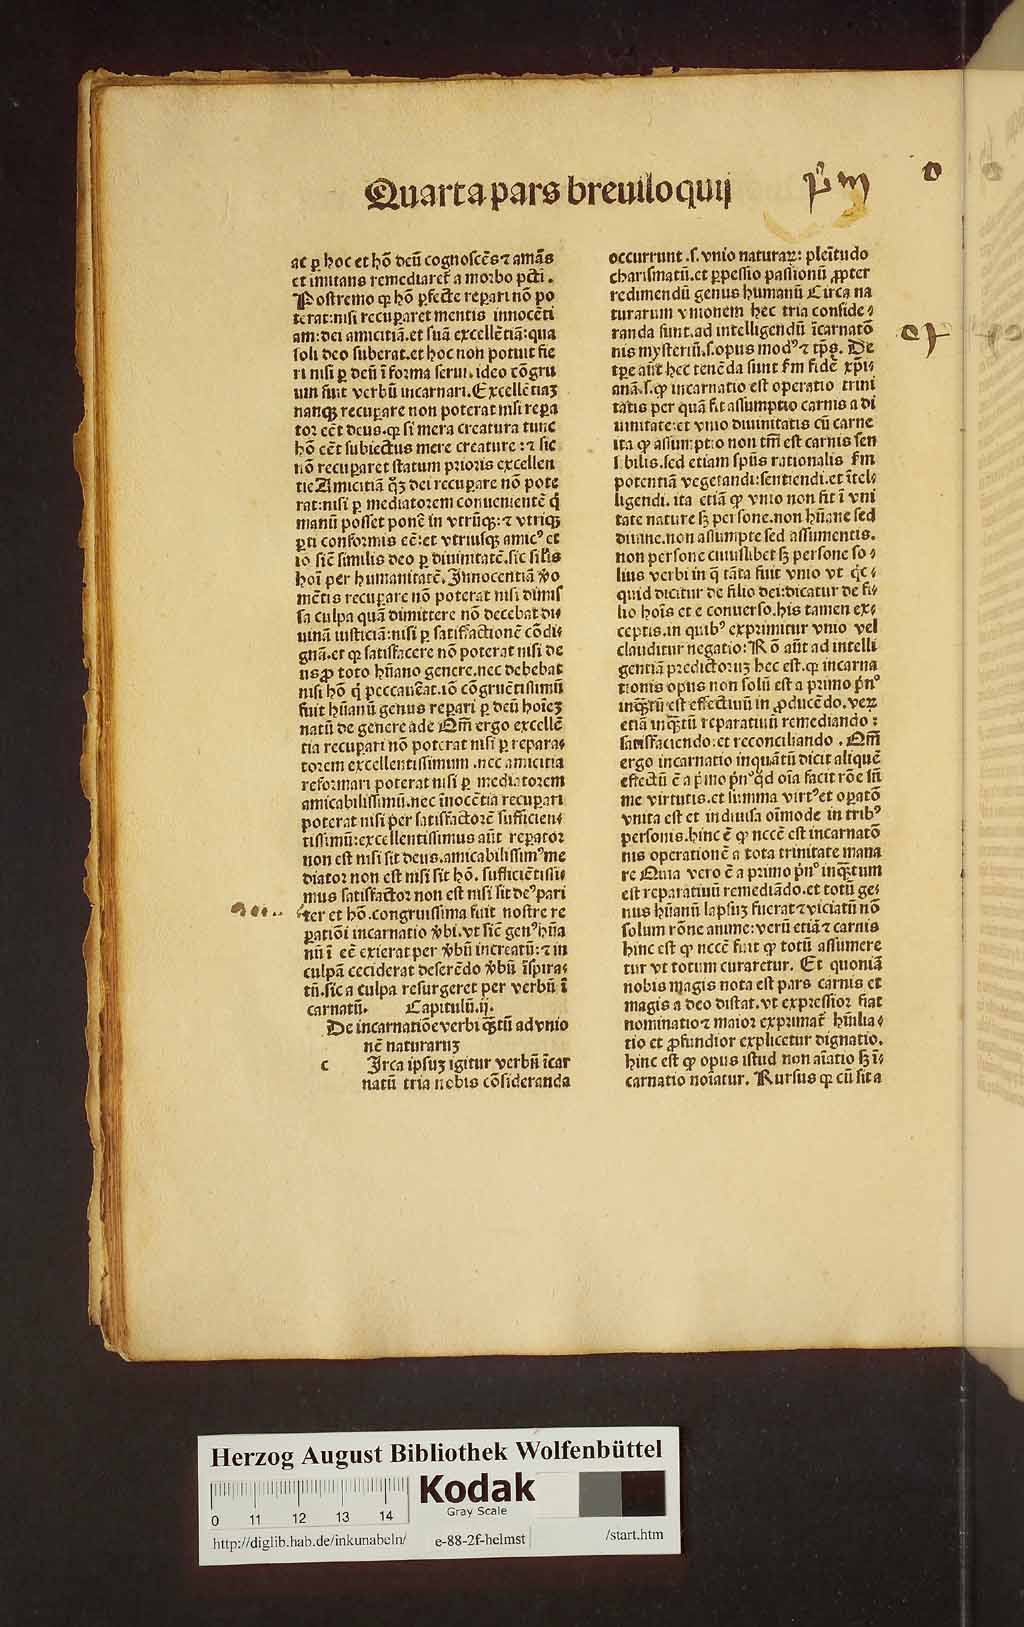 Quarta pars breuiloquij
ac ꝑ hoc et hõ deũ cognoscẽs ⁊ amãs
et imitans remediaret̃ a morbo pctĩ.
Postremo qꝛ hõ ꝑfecte reꝑari nõ po
terat:nisi recuꝑaret mentis innocẽti
am:dei amicitiã.et suã excellẽtiã:qua
soli deo suberat.et hoc non potuit fie
ri nisi ꝑ deũ ĩ forma serui.ideo cõgru
um fuit verbũ incarnari.Excellẽtiaꝫ
nanqꝫ recuꝑare non poterat nisi reꝑa
tor eẽt deus.qꝛ si mera creatura tunc
hõ eẽt subiectus mere creature:⁊ sic
nõ recuꝑaret statum prioris excellen
tie Amicitiã q̃ꝫ dei recuꝑare nõ pote
rat:nisi ꝑ mediatorem conuenientẽ q̇
manũ posset ponẽ in vtrũqꝫ:⁊ vtriqꝫ
ꝑti conformis eẽ:et vtriusqꝫ amicꝰ et
io sicẽ similis deo ꝑ diuinitatẽ.sic sil̃is
hoĩ per humanitatẽ. Innocentiã ṽo
mẽtis recuꝑare nõ poterat nisi dimis
sa culpa quã dimittere nõ decebat di⸗
uinã iusticiã:nisi ꝑ satisfactionẽ cõdi⸗
gnã.et qꝛ satisfacere nõ poterat nisi de
us ꝓ toto hũano genere.nec debebat
nisi hõ q̇ peccauẽat.iõ cõgruẽtissimũ
fuit hũanũ genus reꝑari ꝑ deũ hoĩeꝫ
natũ de genere ade Qm̃ ergo excellẽ
tia recuꝑari nõ poterat nisi ꝑ reꝑara⸗
torem excellentissimum .nec amicitia
reformari poterat nisi ꝑ mediatorem
amicabilissimũ.nec ĩnocẽtia recuꝑari
poterat nisi per satisfactorẽ sufficien⸗
tissimũ:excellentissimus aũt reꝑator
non est nisi sit deus.amicabilissimꝰ me
diator non est nisi sit hõ. sufficiẽtissi⸗
mus satisfactor non est nisi sit deꝰ pari
ter et hõ.congruissima fuit nostre re
ꝑatiõi incarnatio ṽbi.vt sicẽ genꝰ hũa
nũ ĩ eẽ exierat per ṽbũ increatũ:⁊ in
culpã ceciderat deserẽdo ṽbũ ĩspira⸗
tũ.sic a culpa resurgeret per verbũ ĩ
carnatũ. Capitulũ.ij.
De incarnatiõe verbi qꝫtũ ad vnio
nẽ naturaruꝫ
c Irca ipsuꝫ igitur verbũ ĩcar
natũ tria nobis cõsideranda
occurrunt .s. vnio naturaꝝ: pleĩtudo
charismatũ.et ꝑpessio passionũ ꝓpter
redimendũ genus humanũ Circa na
turarum vnionem hec tria conside⸗
randa sunt.ad intelligendũ ĩcarnatõ
nis mysteriũ.s.opus modꝰ ⁊ tp̃s. De
tꝑe aũt hec tenẽda sunt fm̃ fidẽ xp̃i⸗
anã.s.ꝙ incarnatio est operatio trini
tatis per quã fit assumptio carnis a di
uinitate:et vnio diuinitatis cũ carne
ita ꝙ assumptio non tm̃ est carnis sen
sibilis.sed etiam spũs rationalis fm̃
potentiã vegetandi:sentiendi.et ĩtel⸗
ligendi. ita etiã ꝙ vnio non fit ĩ vni
tate nature sꝫ persone.non hũane sed
diuine.non assumpte sed assumentis.
non persone cuiuslibet sꝫ persone so⸗
lius verbi in q̃ tãta fuit vnio vt q̇c⸗
quid dicitur de filio dei:dicatur de fi⸗
lio hoĩs et e conuerso.his tamen ex⸗
ceptis.in quibꝰ exprimitur vnio vel
clauditur negatio:Rõ aũt ad intelli
gentiã predictoruꝫ hec est.qꝛ incarna
tionis opus non solũ est a primo p̃nᵒ
inqꝫtũ est effectiuũ in ꝓducẽdo.veꝝ
etiã inqꝫtũ reparatiuũ remediando:
satisfaciendo:et reconciliando . Qm̃
ergo incarnatio inquãtũ dicit aliquẽ
effectũ ẽ a p̃mo p̃nᵒ qd̃ oĩa facit rõe sũ
me virtutis.et summa virtꝰ et oꝑatõ
vnita est et indiuisa oĩmode in tribꝰ
personis.hinc ẽ ꝙ nccẽ est incarnatõ
nis operationẽ a tota trinitate mana
re Quia vero ẽ a primo p̃nᵒ inqꝫtum
est reparatiuũ remediãdo.et totũ ge⸗
nus hũanũ lapsuꝫ fuerat ⁊ viciatũ nõ
solum rõne anime:verũ etiã ⁊ carnis
hinc est ꝙ nccẽ fuit ꝙ totũ assumere
tur vt totum curaretur. Et quoniã
nobis magis nota est pars carnis et
magis a deo distat.vt expressior fiat
nominatio ⁊ maior exprimat̃ hũilia⸗
tio et ꝓfundior explicetur dignatio.
hinc est ꝙ opus istud non aĩatio sꝫ ĩ⸗
carnatio noĩatur. Rursus qꝛ cũ sit a
Herzog August Bibliothek Wolfenbüttel
Kodak
Gray Scale
0 11 12 13 14
http://diglib.hab.de/inkunabeln/ e-88-2f-helmst /start.htm